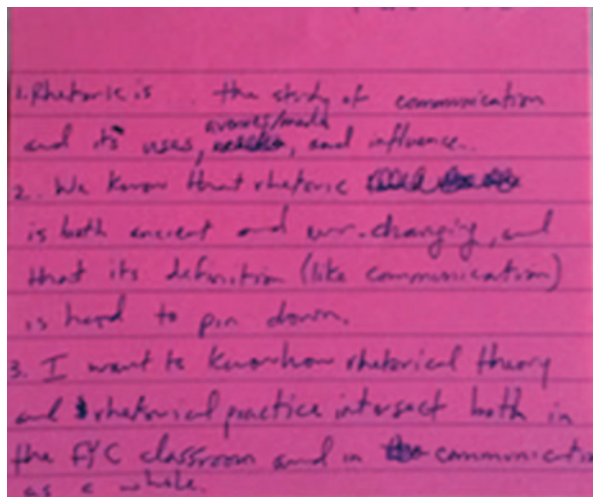 1. Rhetoric is the study of communication
and its uses, and influence.
2. We know that rhetoric
is both ancient and ever-changing, and
that its definition (like communication)
is hard to pin down.
3. I want to know how rhetorical theory
and rhetorical practice intersect both in
the FYC classroom and in communication
as a whole.